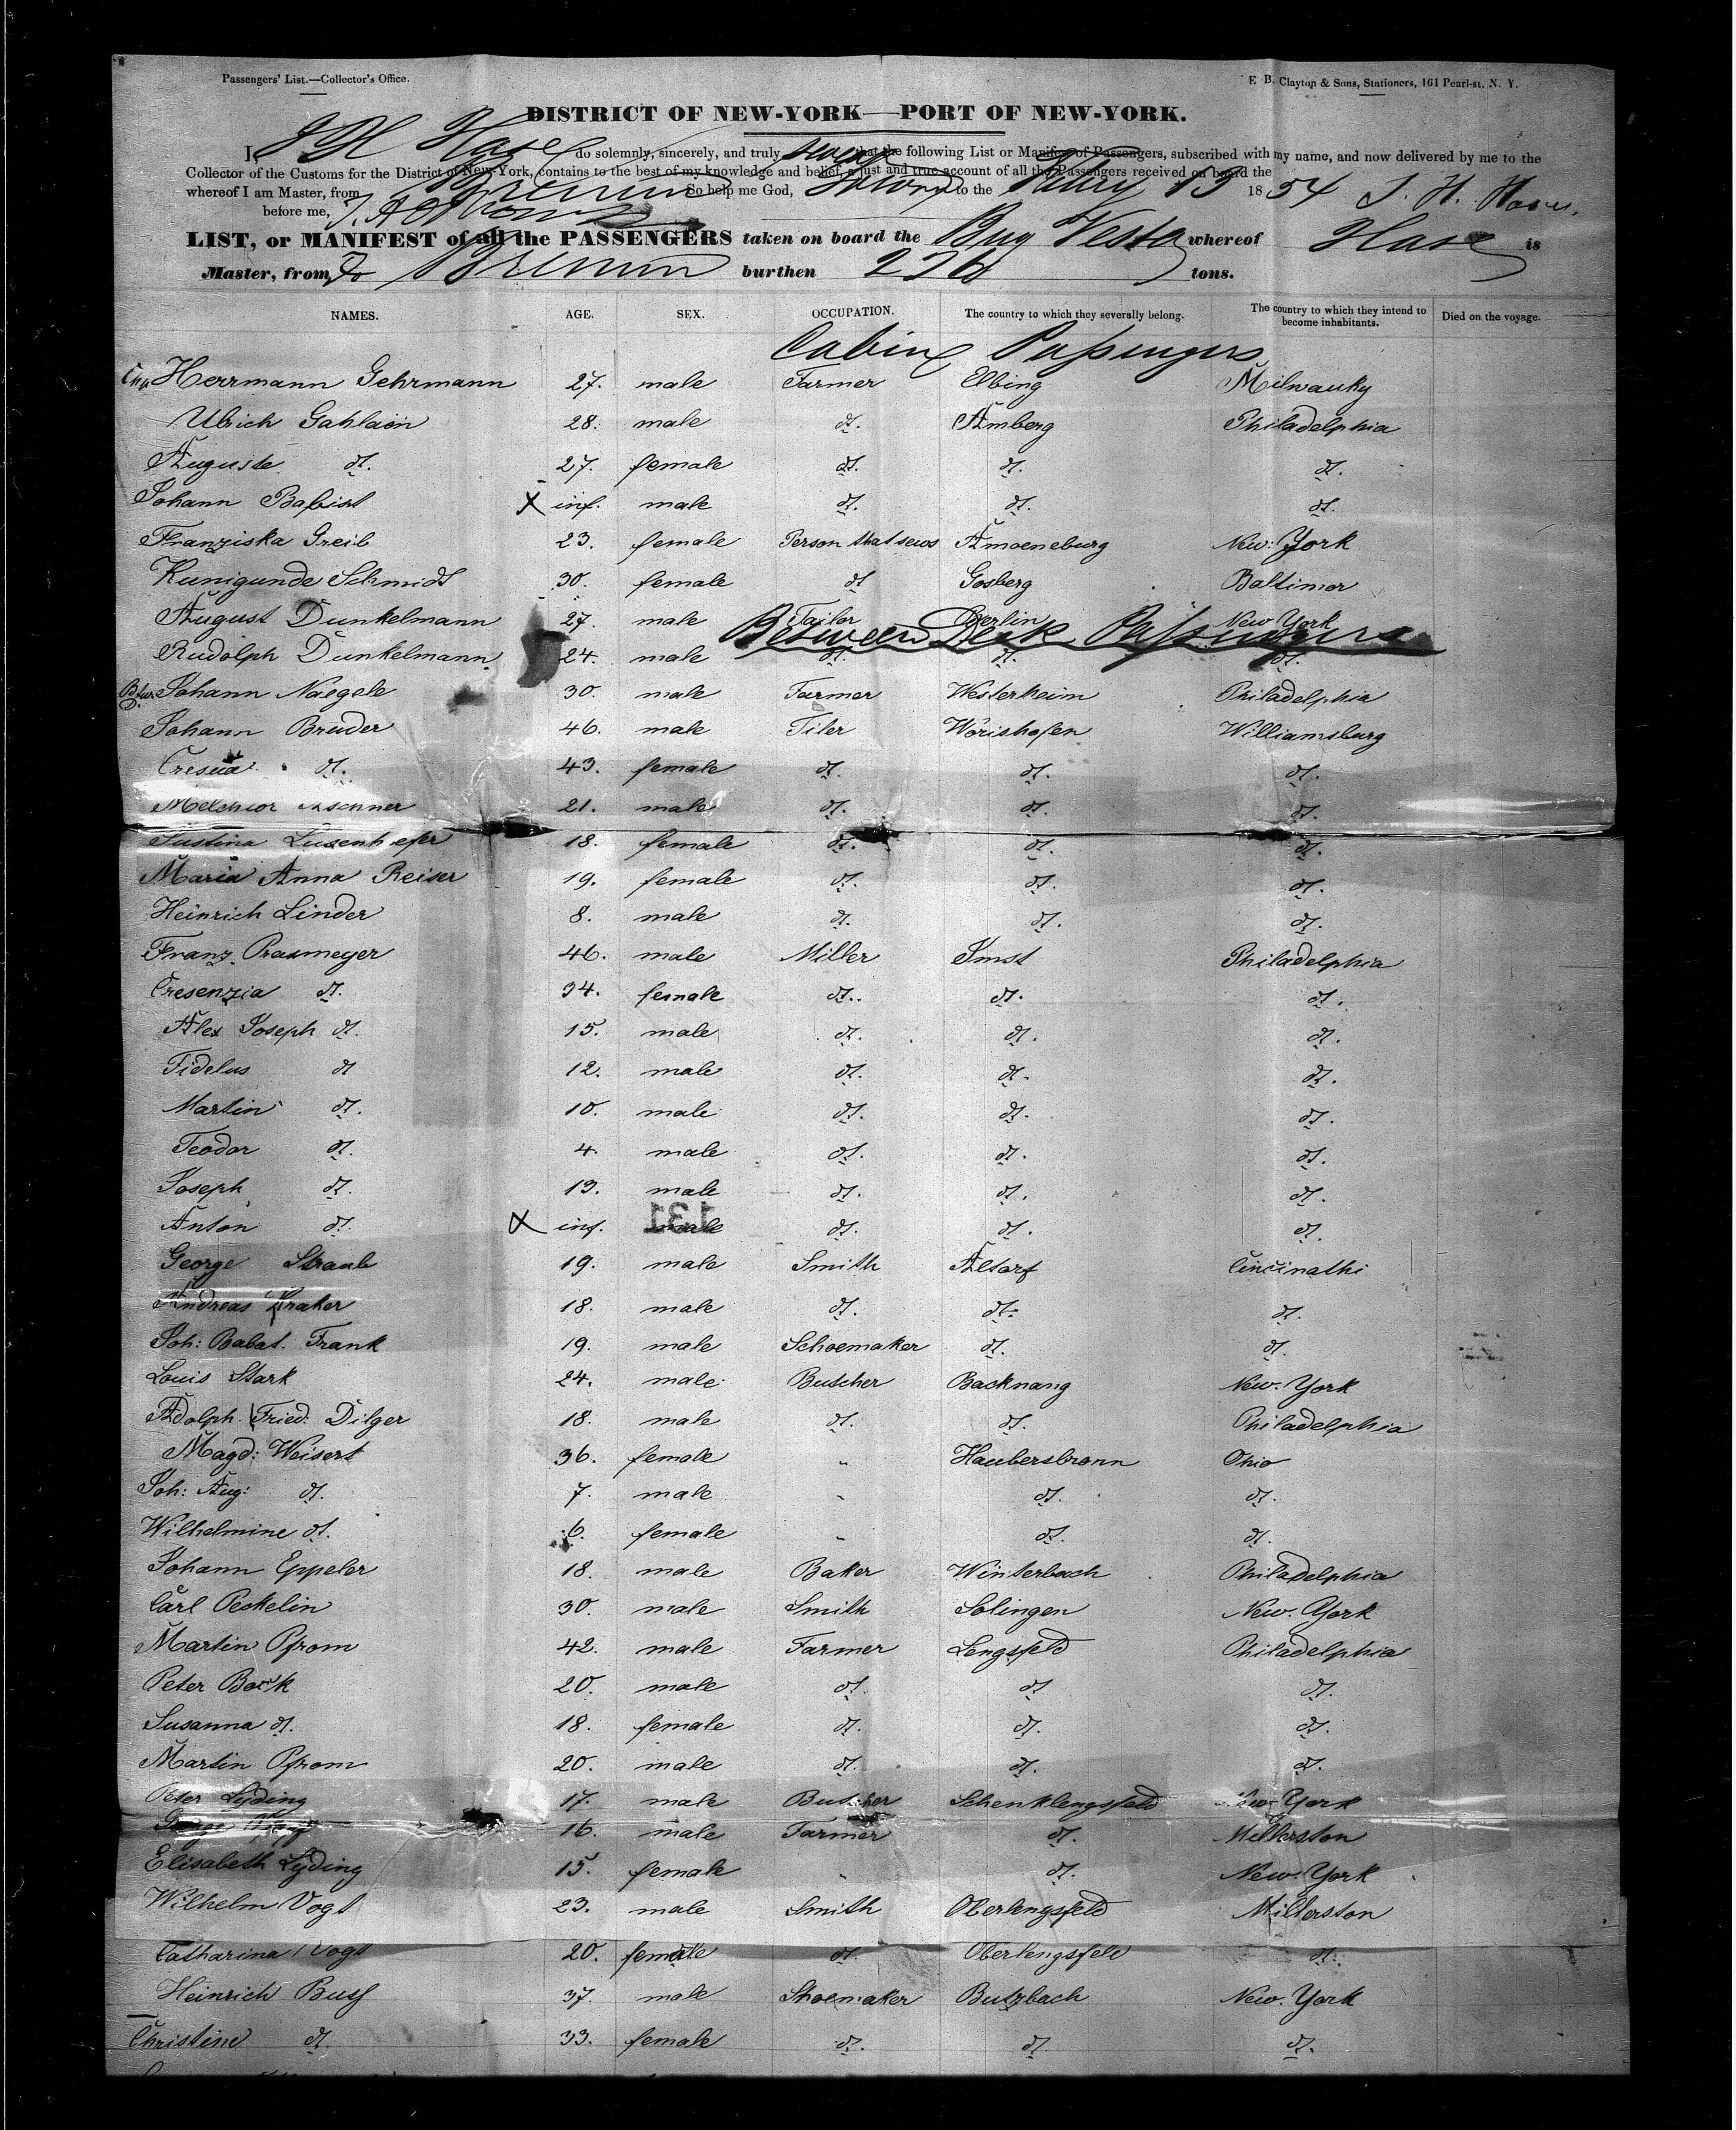 Passengers' List.—Collector's Office.
E. B. Clayton & Sons, Stationers, 161 Pearl-st. N. Y.
DISTRICT OF NEW-YORK—PORT OF NEW-YORK.
I, J H Hase do solemnly, sincerely, and truly swear that the following List or Manifest of Passengers, subscribed with my name, and now delivered by me to the
Collector of the Customs for the District of New-York, contains to the best of my knowledge and belief, a just and true account of all the Passengers received on board the
whereof I am Master, from Bremen So help me God, Sworn to the 13 1854 J. H. Hase.
before me,
LIST, or MANIFEST of all the PASSENGERS taken on board the Brig Vesta whereof Hase is
Master, from Bremen burthen 276 tons.
NAMES. AGE. SEX. OCCUPATION. The country to which they severally belong. The country to which they intend to become inhabitants. Died on the voyage.
Cabin Passengers
Herrmann Gehrmann 27. male Farmer Elbing Milwauky
Ulrich Gahlaion 28. male dt. Amberg Philadelphia
Auguste dt. 27. female dt. dt. dt.
Johann Babist X inf. male dt. dt. dt.
Franziska Greib 23. female Person that sews Amoeneburg New-York
Kunigunde Schmidt 30. female dt Gosberg Baltimor
August Dunkelmann 27. male Tailor Berlin New York
Between Deck Passengers
Rudolph Dunkelmann 24. male dt. dt. dt.
Johann Naegele 30. male Farmer Westerheim Philadelphia
Johann Bruder 46. male Tiler Wörishofen Williamsburg
dt. 43. female dt. dt. dt.
Melchior 21. male dt. dt. dt.
Justina 18. female dt. dt. dt.
Maria Anna Reiser 19. female dt. dt. dt.
Heinrich Linder 8. male dt. dt. dt.
Franz Prasmeyer 46. male Miller Imst Philadelphia
Cresenzia dt. 34. female dt. dt. dt.
Alex Joseph dt. 15. male dt. dt. dt.
Fidelus dt 12. male dt. dt. dt.
Martin dt. 10. male dt. dt. dt.
Teodor dt. 4. male dt. dt. dt.
Joseph dt. 13. male dt. dt. dt.
131
Anton dt. X inf. male dt. dt. dt.
George Straub 19. male Smith Altorf Cincinathi
Andreas 18. male dt. dt. dt.
Joh: Babst. Frank 19. male Schoemaker dt. dt.
Louis Stark 24. male Butcher Backnang New-York
Adolph Fried: Dilger 18. male dt. dt. Philadelphia
Magd: Weisert 36. female " Haubersbronn Ohio
Joh: Aug: dt. 7. male " dt. dt.
Wilhelmine dt. 6. female " dt. dt.
Johann Eppeler 18. male Baker Winterbach Philadelphia
Carl Peckelin 30. male Smith Solingen New-York
Martin Pfrom 42. male Farmer Lengsfeld Philadelphia
Peter Bock 20. male dt. dt dt.
Susanna dt. 18. female dt. dt. dt.
Martin Pfrom 20. male dt. dt. dt.
Peter Lyding 17. male Butcher Schenklengsfeld New-York
16. male Farmer dt. Millerston
Elisabeth Lyding 15. female " dt. New-York
Wilhelm Vogt 23. male Smith Oberlengsfeld Millerston
Catharina Vogt 20. female dt. Oberlengsfeld dt.
Heinrich Buss 37. male Shoemaker Butzbach New-York
Christine dt. 33. female dt. dt. dt.